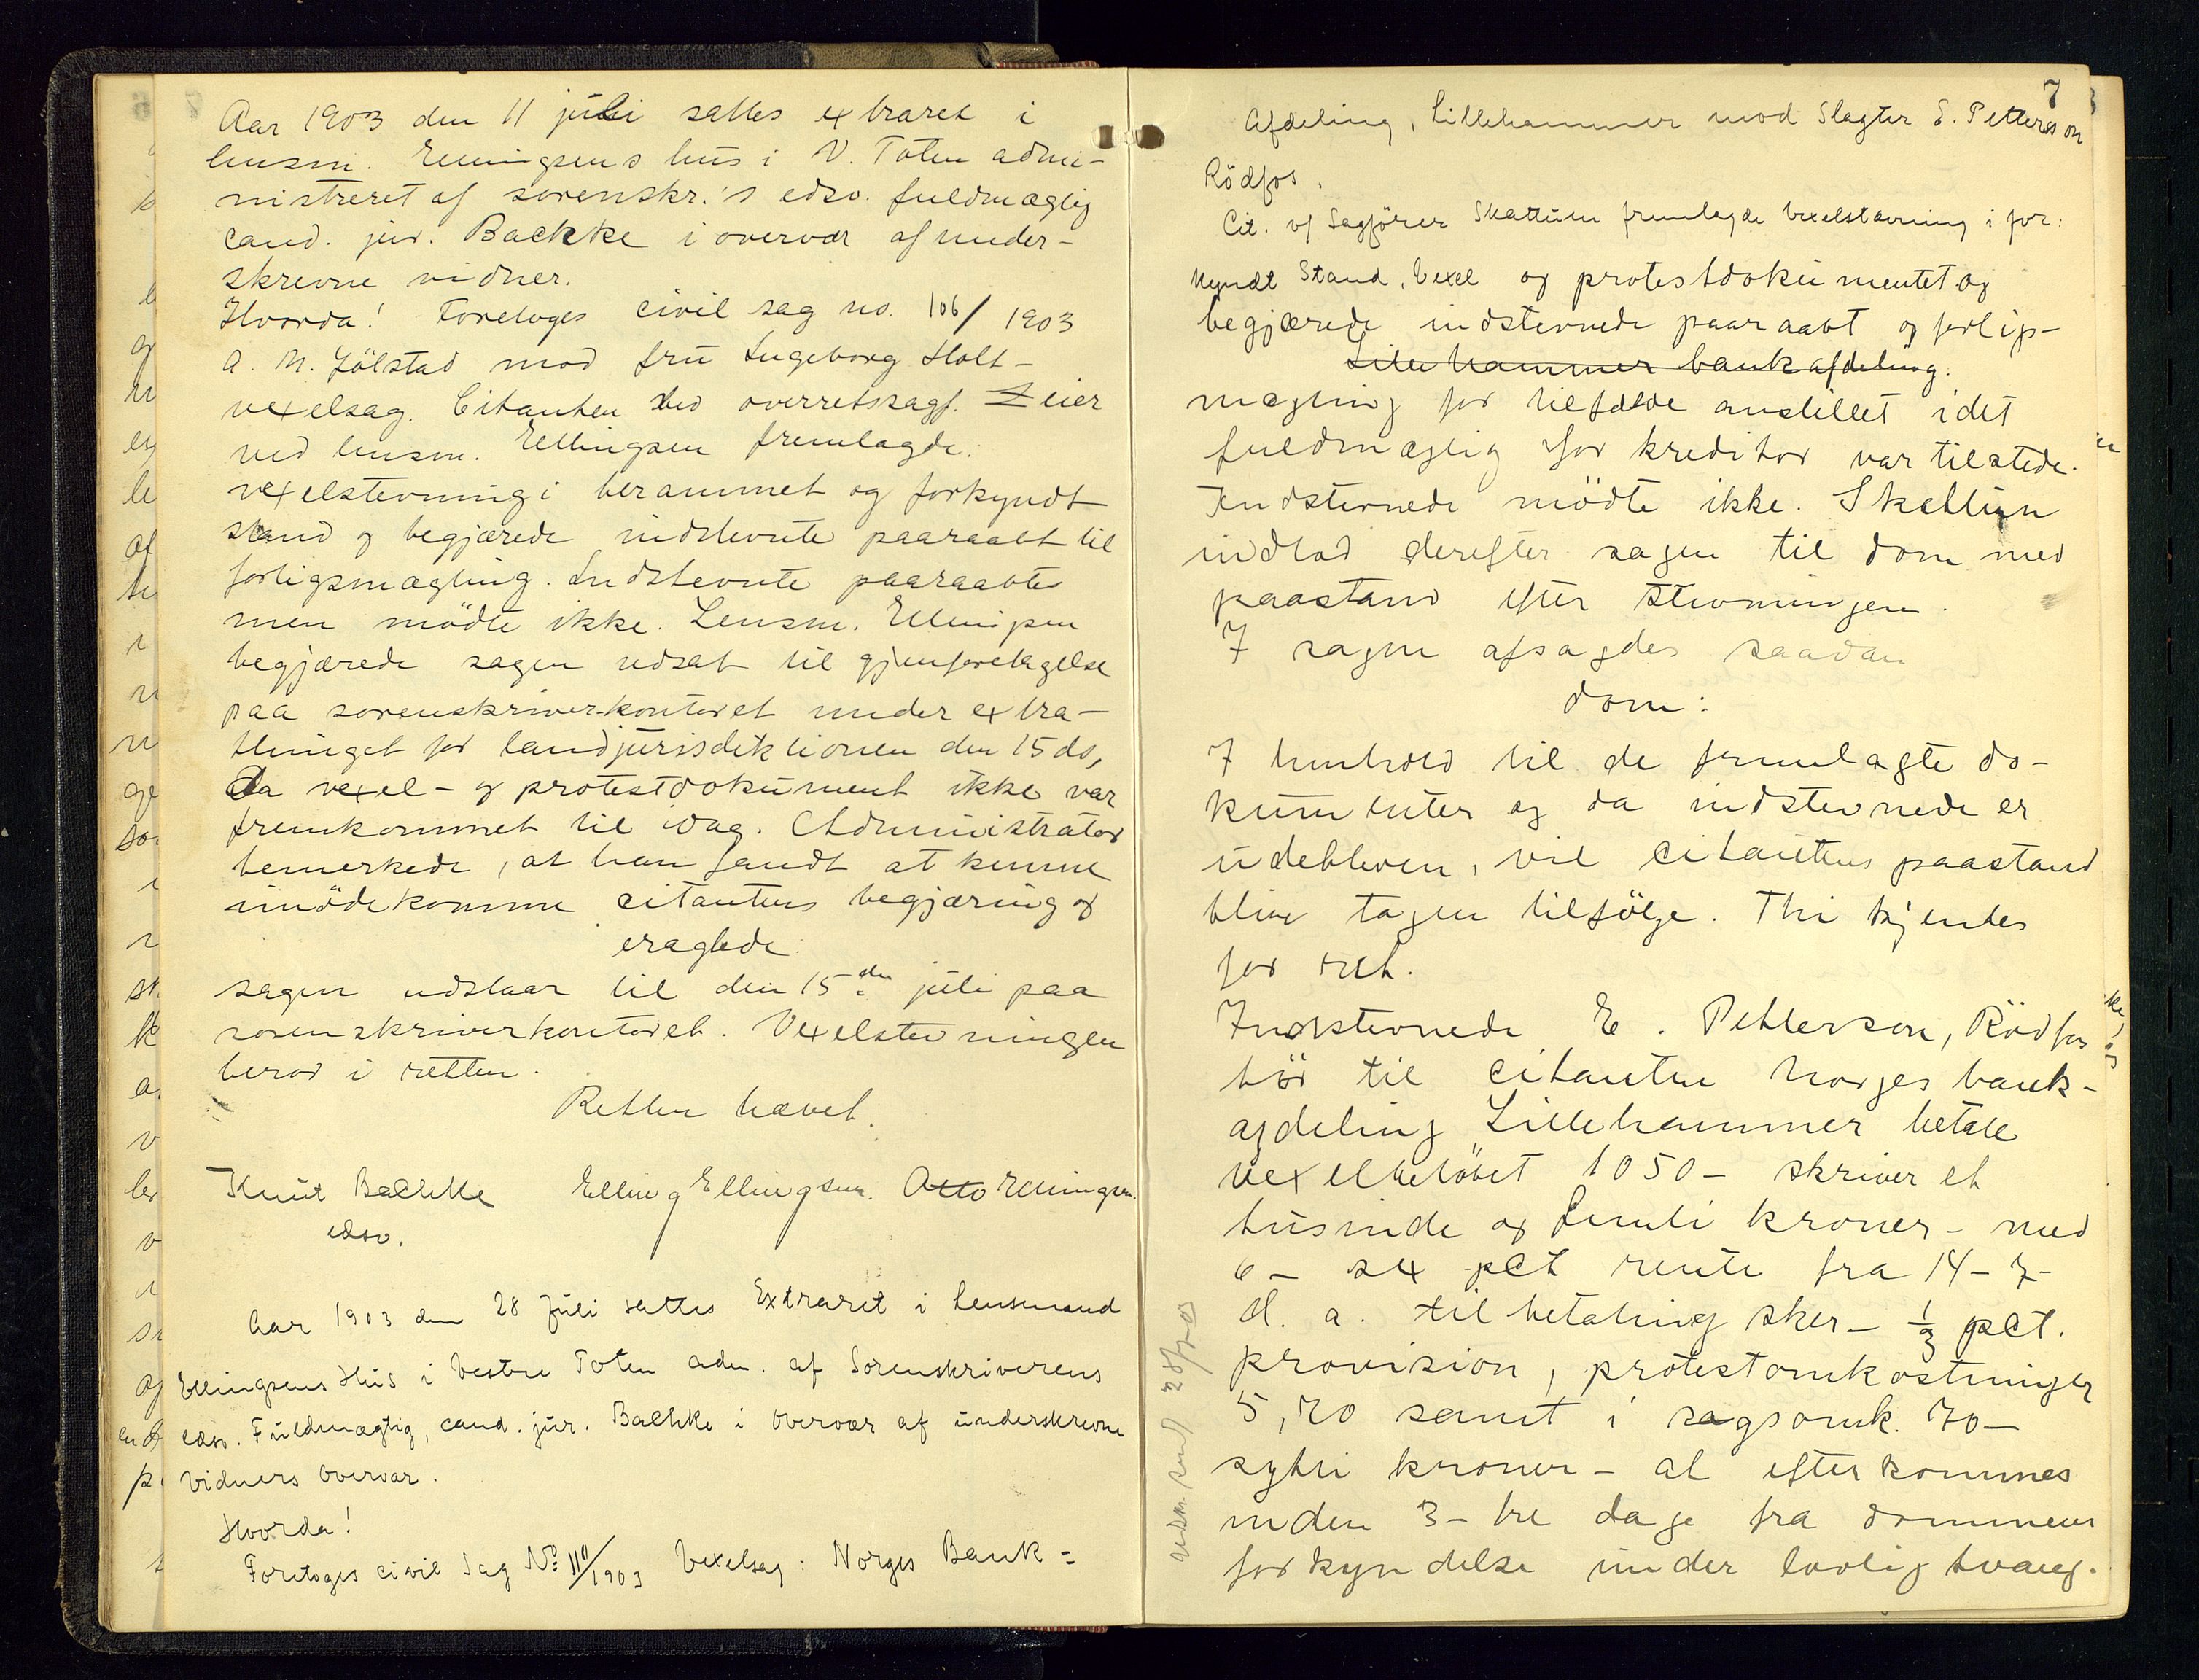 Aar 1903 den 11 juli sattes extraret i
lensm. Ellingsens hus i V. Toten admi-
nistreret af sorenskr.'s edsv. fuldmægtig
cand. jur. Backke i overvær af under-
skrevne vidner.
Hvorda! Foretoges civil sag no. 106/1903
A. M. Jölstad mod fru Ingeborg Holt-
vexelsag. Citanten ved overretssagf. Zeier
ved lensm. Ellingsen fremlagde
vexelstevning i berammet og forkyndt
stand og begjærede indstevnte paaraabt til
forligsmægling. Indstevnte paaraabtes
men mödte ikke. Lensm. Ellingsen
begjærede sagen udsat til gjenforetagelse
paa sorenskriverkontoret under extra-
thinget for landjurisdiktionen den 15 ds,
da vexel- og protestdokument ikke var
fremkommet til idag. Administrator
bemerkede, at han fandt at kunne
imödekomme citantens begjæring og
eragtede:
sagen udstaar til den 15den juli paa
sorenskriverkontoret. Vexelstevningen
beror i retten.
Retten hævet.
Knut Backke Elling Ellingsen. Otto Ellingsen.
edsv.
Aar 1903 den 28 Juli sattes Extraret i Lensmand
Ellingsens Hus i Vestre Toten adm. af Sorenskriverens
edsv. Fuldmægtig, cand. jur. Backke i Overvær af underskrevne
Vidners Overvær.
Hvorda!
Foretoges civil Sag No 110/1903 Vexelsag: Norges Bank =
7
Afdeling, Lillehammer mod Slagter E. Petterson
Rödfos.
Cit. v/ Sagförer Skattum fremlagde Vexelstævning i for:
kyndt Stand, Vexel og protestdokumentet og
begjærede indstevnede paaraabt og forligs-
Lillehammer bankafdeling.
mægling for tilfælde anstillet idet
fuldmægtig for kreditor var tilstede.
Indstevnede mödte ikke. Skattum
indlod derefter sagen til dom med
paastand efter stevningen.
I sagen afsagdes saadan
dom:
I henhold til de fremlagte do-
kumenter og da indstevnede er
udebleven, vil citantens paastand
blive tagen tilfölge. Thi kjendes
for ret.
Indstevnede E. Petterson, Rödfos
bör til citanten Norges bank-
afdeling Lillehammer betale
vexelbelöbet 1050- skriver et
tusinde og femti kroner- med
6- sex pct rente fra 14-7-
d. a. til betaling sker- 1/3 pct.
provision, protestomkostninger
5,70 samt i sagsomk. 70-
sytti kroner- at efterkommes
inden 3- tre dage fra dommens
forkyndelse under lovlig tvang.
28/7 03